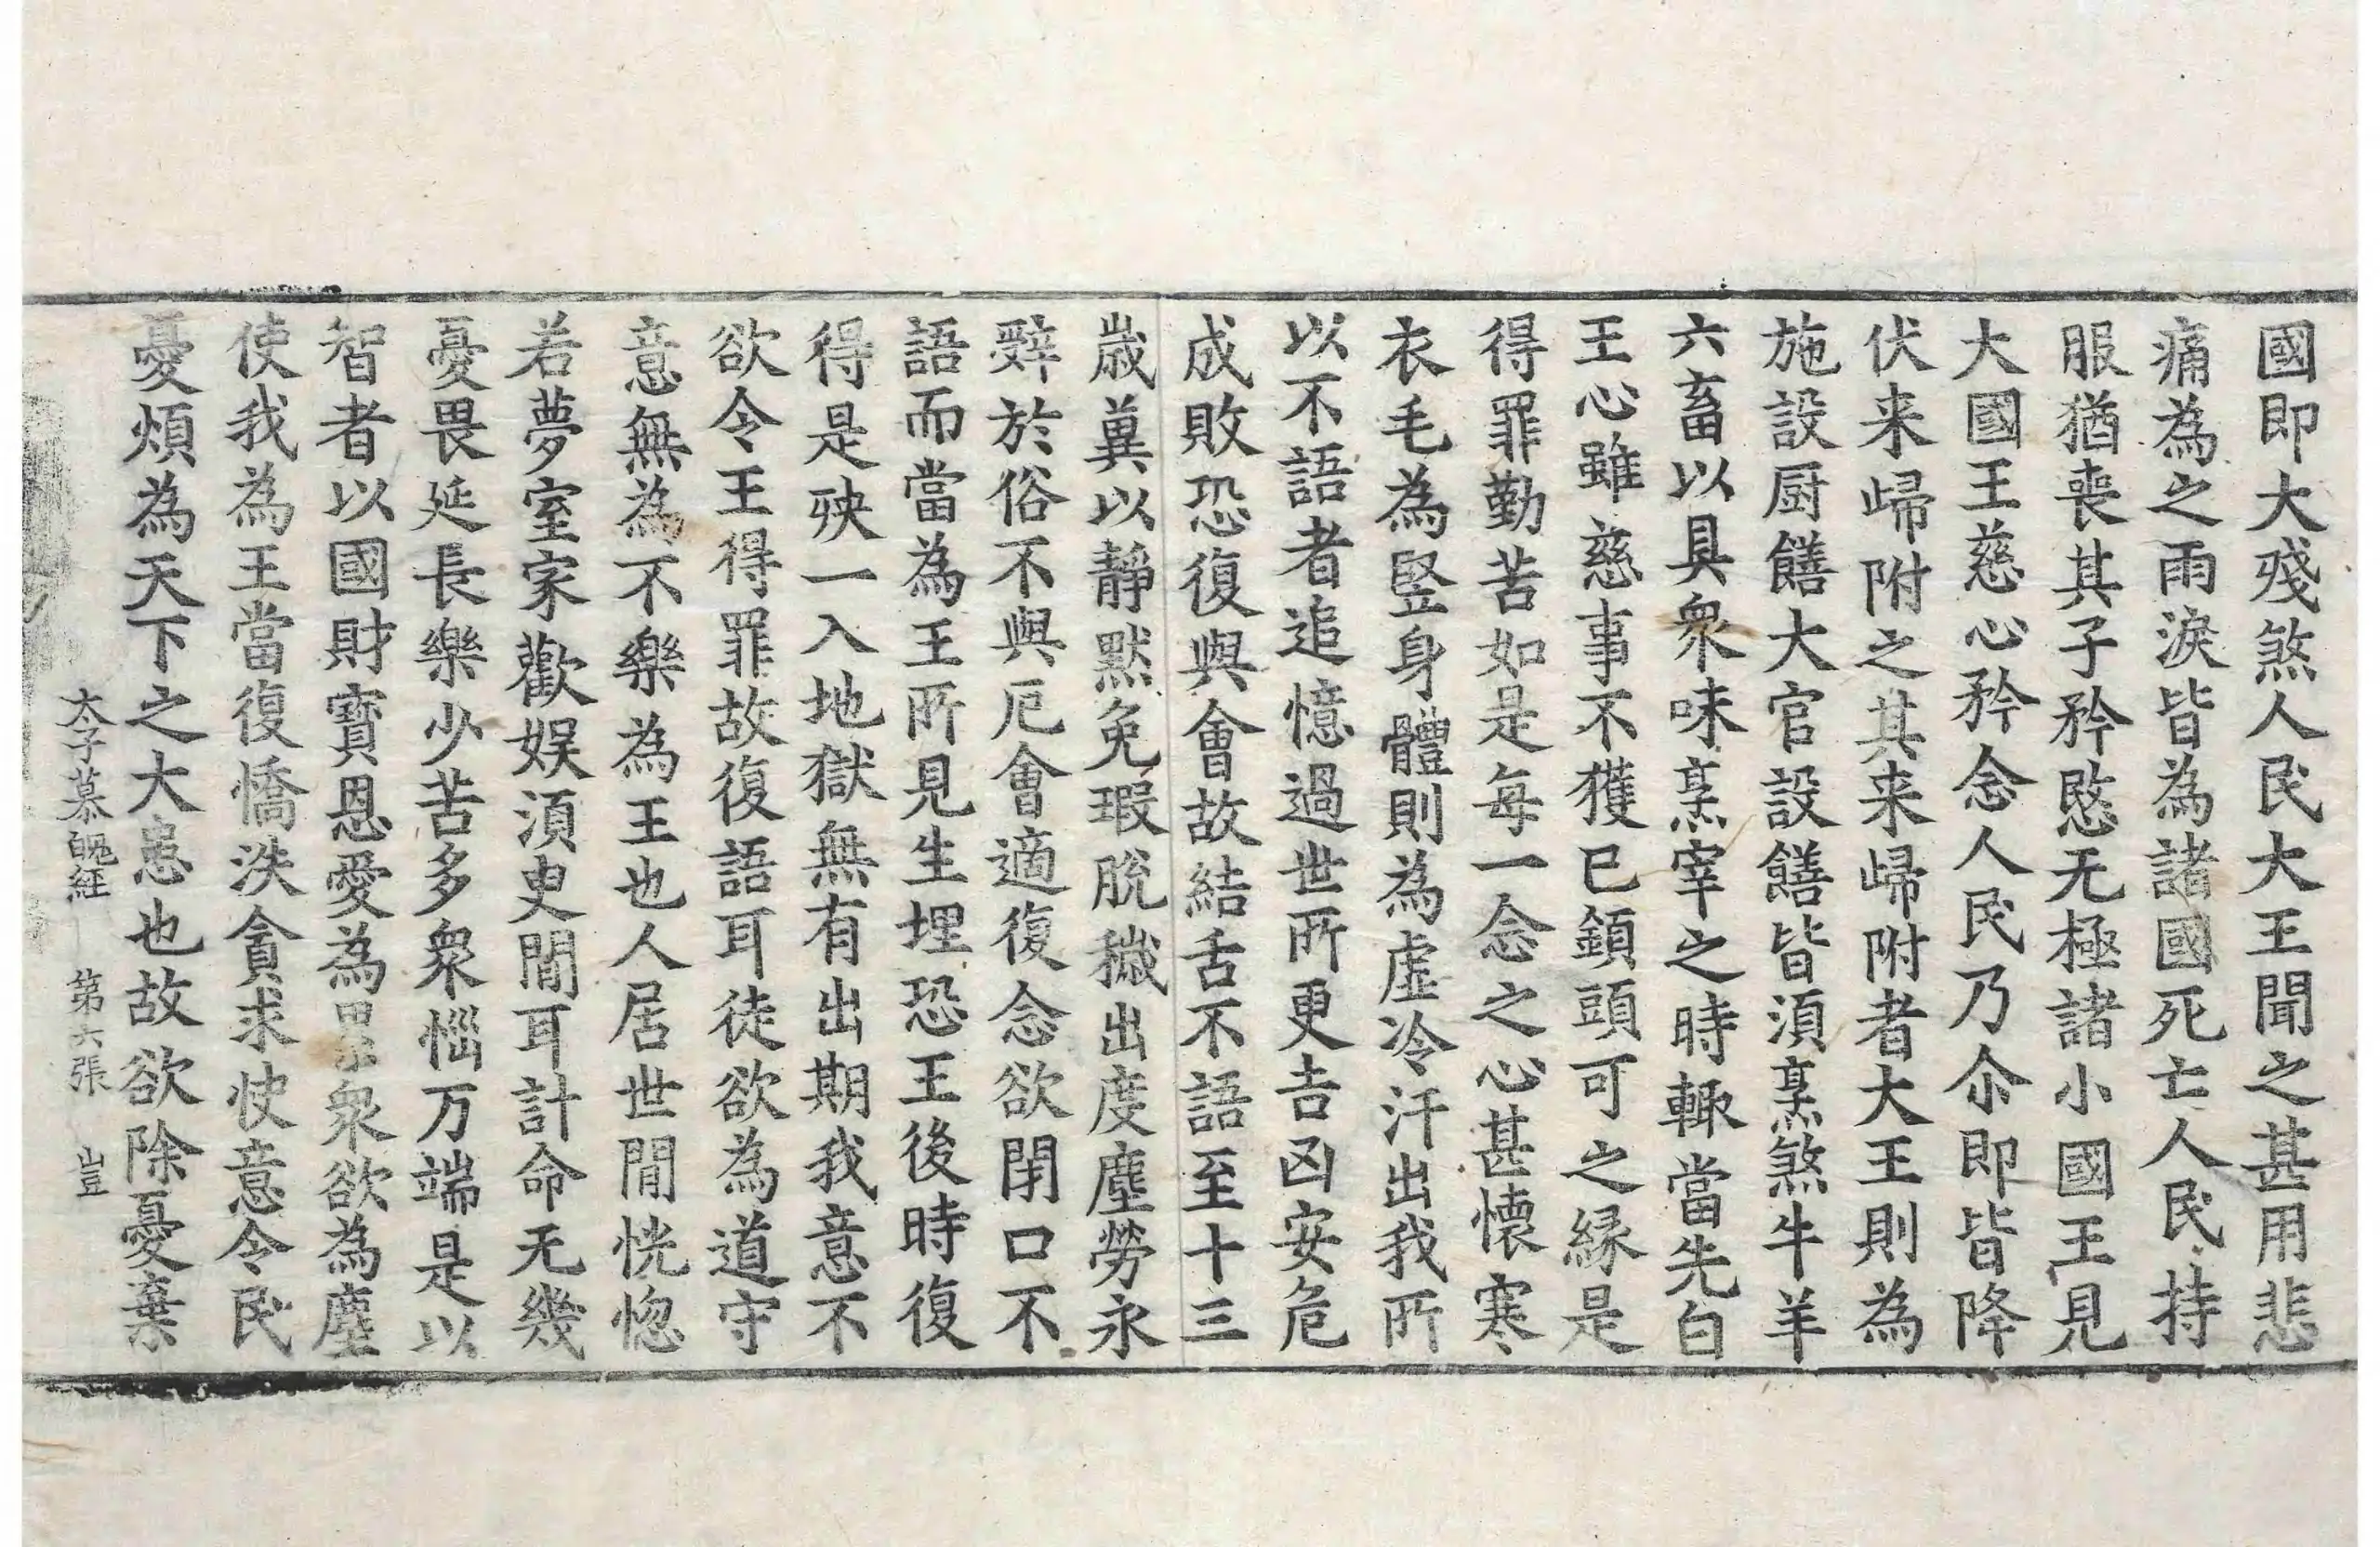 國即大殘煞人民大王聞之甚用悲
痛為之雨淚皆為諸國死亡人民持
服猶喪其子矜愍无極諸小國王見
大國王慈心矜念人民乃尒即皆降
伏来歸附之其来歸附者大王則為
施設厨饍大官設饍皆湏烹煞牛羊
六畜以具衆味烹宰之時輙當先白
王心雖慈事不獲已鎖頭可之縁是
得罪勤苦如是每一念之心甚懷寒
衣毛為竪身體則為虛冷汗出我所
以不語者追憶過世所更吉凶安危
成敗恐復與會故結舌不語至十三
歳兾以静默免瑕脫穢出度塵勞永
辤於俗不與厄會適復念欲閉口不
語而當為王所見生埋恐王後時復
得是殃一入地獄無有出期我意不
欲令王得罪故復語耳徒欲為道守
意無為不樂為王也人居世閒恍惚
若夢室家歡娱湏臾閒耳計命无幾
憂畏延長樂少苦多衆惱万端是以
智者以國財寶恩愛為累衆欲為塵
使我為王當復憍泆貪求快意令民
憂煩為天下之大患也故欲除憂棄
太子慕魄経 第六張 豈